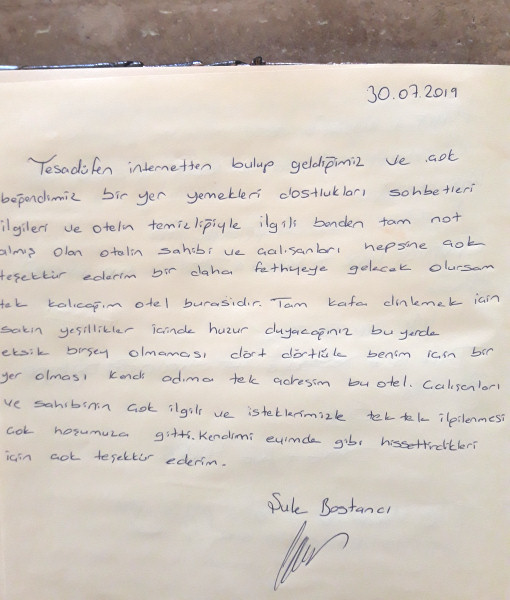 30.07.2019
Tesadüfen internetten bulup geldiğimiz ve çok
beğendimiz bir yer yemekleri dostlukları sohbetleri
ilgileri ve otelin temizliğiyle ilgili benden tam not
almış olan otelin sahibi ve çalışanları hepsine çok
teşekkür ederim bir daha fethiyeye gelecek olursam
tek kalıcağım otel burasıdır. Tam kafa dinlemek için
sakin yeşillikler içinde huzur duyacağınız bu yerde
eksik birşey olmaması dört dörtlük benim için bir
yer olması kendi adıma tek adresim bu otel. Çalışanları
ve sahibinin çok ilgili ve isteklerimizle tek tek ilgilenmesi
çok hoşumuza gitti. Kendimi evimde gibi hissettirdikleri
için çok teşekkür ederim.
Şule Bostancı